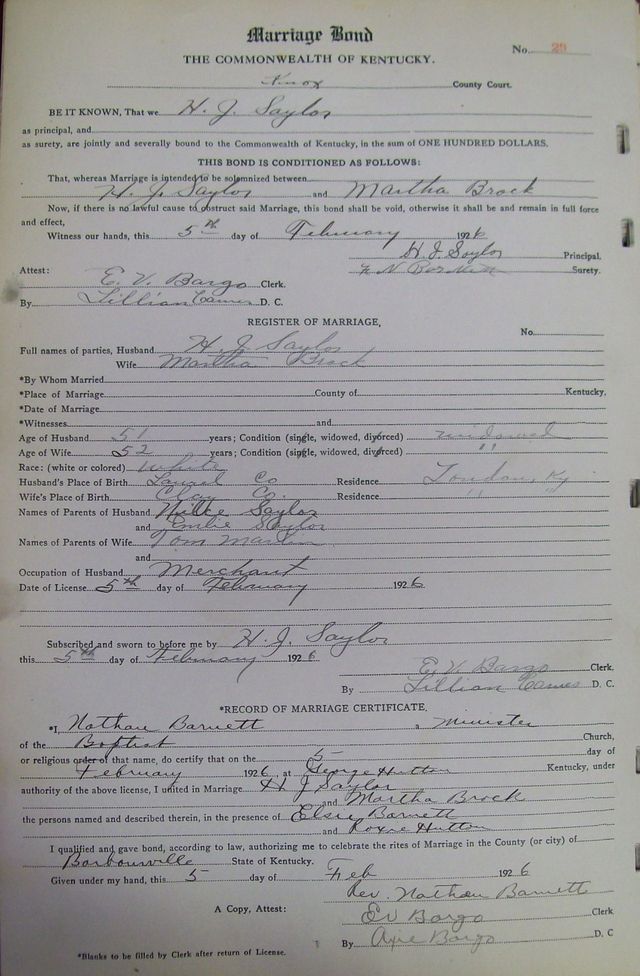 Marriage Bond
No. 29
THE COMMONWEALTH OF KENTUCKY.
Knox County Court.
BE IT KNOWN, That we H. J. Saylor
as principal, and
as surety, are jointly and severally bound to the Commonwealth of Kentucky, in the sum of ONE HUNDRED DOLLARS.
THIS BOND IS CONDITIONED AS FOLLOWS:
That, whereas Marriage is intended to be solemnized between
H. J. Saylor and Martha Brock
Now, if there is no lawful cause to obstruct said Marriage, this bond shall be void, otherwise it shall be and remain in full force
and effect,
Witness our hands, this 5th day of February 1926
H. J. Saylor Principal.
Surety.
Attest: E. V. Bargo Clerk.
By Lillian Eames D. C.
REGISTER OF MARRIAGE,
No.
Full names of parties, Husband H. J. Saylor
Wife Martha Brock
*By Whom Married
*Place of Marriage County of Kentucky,
*Date of Marriage
*Witnesses and
Age of Husband 51 years; Condition (single, widowed, divorced) widowed
Age of Wife 52 years; Condition (single, widowed, divorced) "
Race: (white or colored) White
Husband's Place of Birth Laurel Co Residence London, Ky
Wife's Place of Birth Clay Co. Residence " "
Names of Parents of Husband Saylor
and Emlie Saylor
Names of Parents of Wife Tom
and
Occupation of Husband Merchant
Date of License 5th day of February 1926
Subscribed and sworn to before me by H. J. Saylor
this 5th day of February 1926
E. V. Bargo Clerk.
By Lillian Eames D. C.
*RECORD OF MARRIAGE CERTIFICATE.
*I, Nathan Barnett, a Minister
of the Baptist Church,
or religious order of that name, do certify that on the 5 day of
February 1926, at George Hutton Kentucky, under
authority of the above license, I united in Marriage H J Saylor
and Martha Brock
the persons named and described therein, in the presence of Elsie Barnett
and Roxie Hutton
I qualified and gave bond, according to law, authorizing me to celebrate the rites of Marriage in the County (or city) of
Barbourville State of Kentucky.
Given under my hand, this 5 day of Feb 1926
Rev. Nathan Barnett
A Copy, Attest: EV Bargo Clerk
By Bargo D. C
*Blanks to be filled by Clerk after return of License.